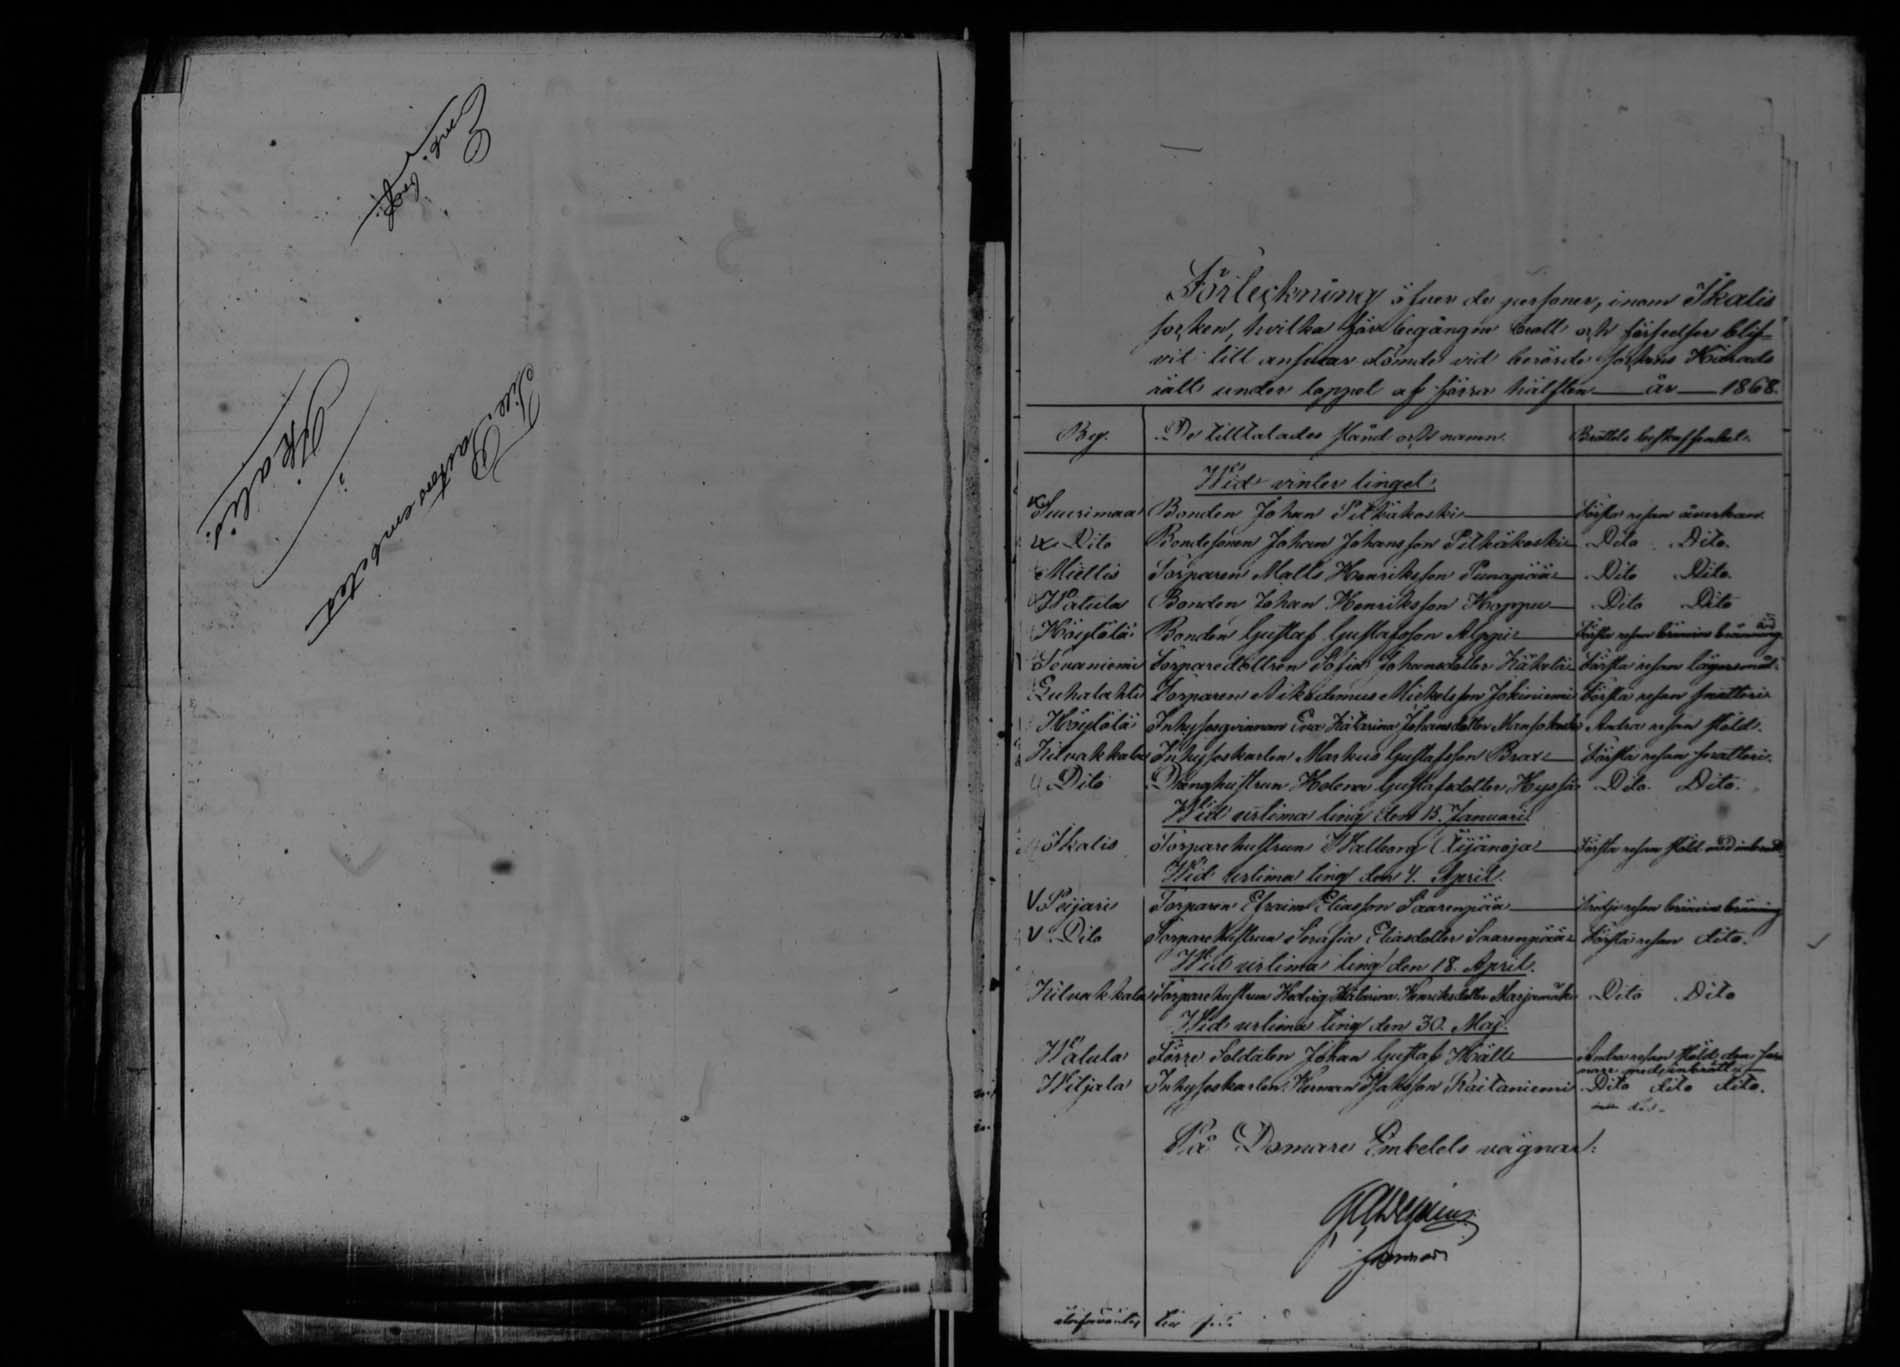 Till Pastorsembetet
i
Ikalis
Förteckning öfver de personer, inom Ikalis
socken, hvilka för begångna brott och förseelser blif-
vit till ansvar dömde vid berörde sockens Härads
rätt under loppet af förra hälften år 1868.
By. De tilltalades stånd och namn. Brottets beskaffenhet.
Wid vinter tinget.
Suurimaa Bonden Johan Pitkäkoski Första resan åverkan.
Dito Bondesonen Johan Johansson Pitkäkoski Dito Dito.
Miettis Torparen Matts Henriksson Punapää Dito Dito.
Watula Bonden Johan Henriksson Koppu Dito Dito
Höytölä Bonden Gustaf Gustafsson Alppi Första resan brännvins bränning
Tevaniemi Torparedottren Sofia Johansdotter Käkelä Första resan lägersmål.
Luhalahti Torparen Nikodemus Mickelsson Jokiniemi Första resan snatteri
Höytölä Inhyseqvinnan Eva Katarina Johansdotter Mansokoski Andra resan stöld.
Kilvakkala Inhyseskarlen Markus Gustafsson Brax Första resan snatteri.
Dito Drenghustrun Helena Gustafsdotter Hyssä Dito. Dito.
Wid urtima ting den 15. Januari.
Ikalis Torparehustrun Walborg Äijänoja Första resan stöld med inbrott
Wid urtima ting den 4. April.
Leijaris Torparen Efraim Eliasson Saarenpää Tredje resan brännvins bränning
Dito Torparehustrun Serafia Eliasdotter Saarenpää Första resan dito.
Wid urtima ting den 18. April.
Kilvakkala Torparehustrun Hedvig Katarina Henriksdotter Marjamäki Dito Dito
Wid urtima ting den 30. Maj.
Watula Förre Soldaten Johan Gustaf Häll Andra resan stöld, den förra
med inbrott
Wiljala Inhyseskarlen Herman Isaksson Raitaniemi Dito dito dito.
På Domare Embetets vägnar: